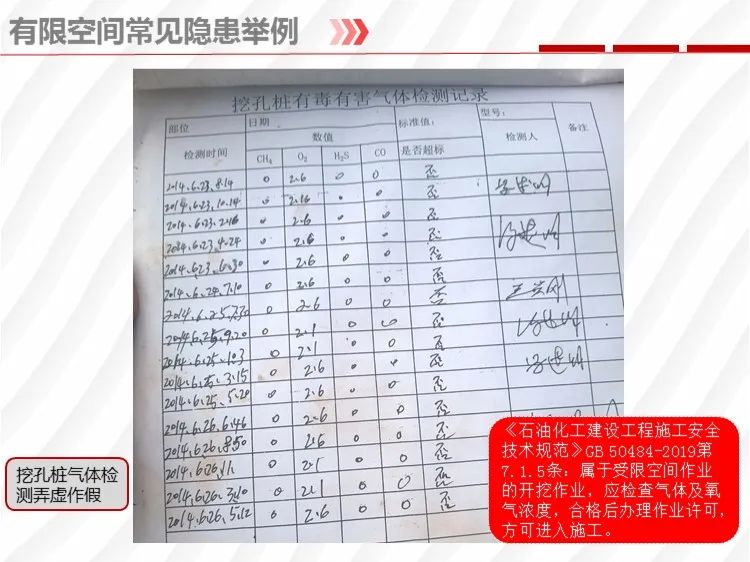 有限空间常见隐患举例
挖孔桩有毒有害气体检测记录
部位 日期 标准值: 型号:
检测时间 数值 是否超标 检测人 备注
CH₄ O₂ H₂S CO
2014.6.23.8.14 0 2.6 0 0 否
2014.6.23.10.14 0 2.16 0 0 否
2014.6.23.2.16 0 2.6 0 0 否
2014.6.23.4.24 0 2.6 0 0 否
2014.6.23.6.30 0 2.6 0 0 否
2014.6.24.7.10 0 2.6 0 0 否
2014.6.25.7.30 0 2.6 0 0 否
2014.6.25.9.20 0 2.1 0 0 否
2014.6.25.1.03 0 2.1 0 0 否
2014.6.25.3.15 0 2.6 0 0 否
2014.6.25.5.20 0 2.6 0 0 否
2014.6.26.6.46 0 2.6 0 0 否
2014.6.26.8.50 0 2.6 0 0 否
2014.6.26.11. 0 2.1 0 0 否
2014.6.26.3.10 0 2.1 0 0 否
2014.6.26.5.12 0 2.6 0 0 否
挖孔桩气体检
测弄虚作假
《石油化工建设工程施工安全
技术规范》GB 50484-2019第
7.1.5条：属于受限空间作业
的开挖作业，应检查气体及氧
气浓度，合格后办理作业许可，
方可进入施工。